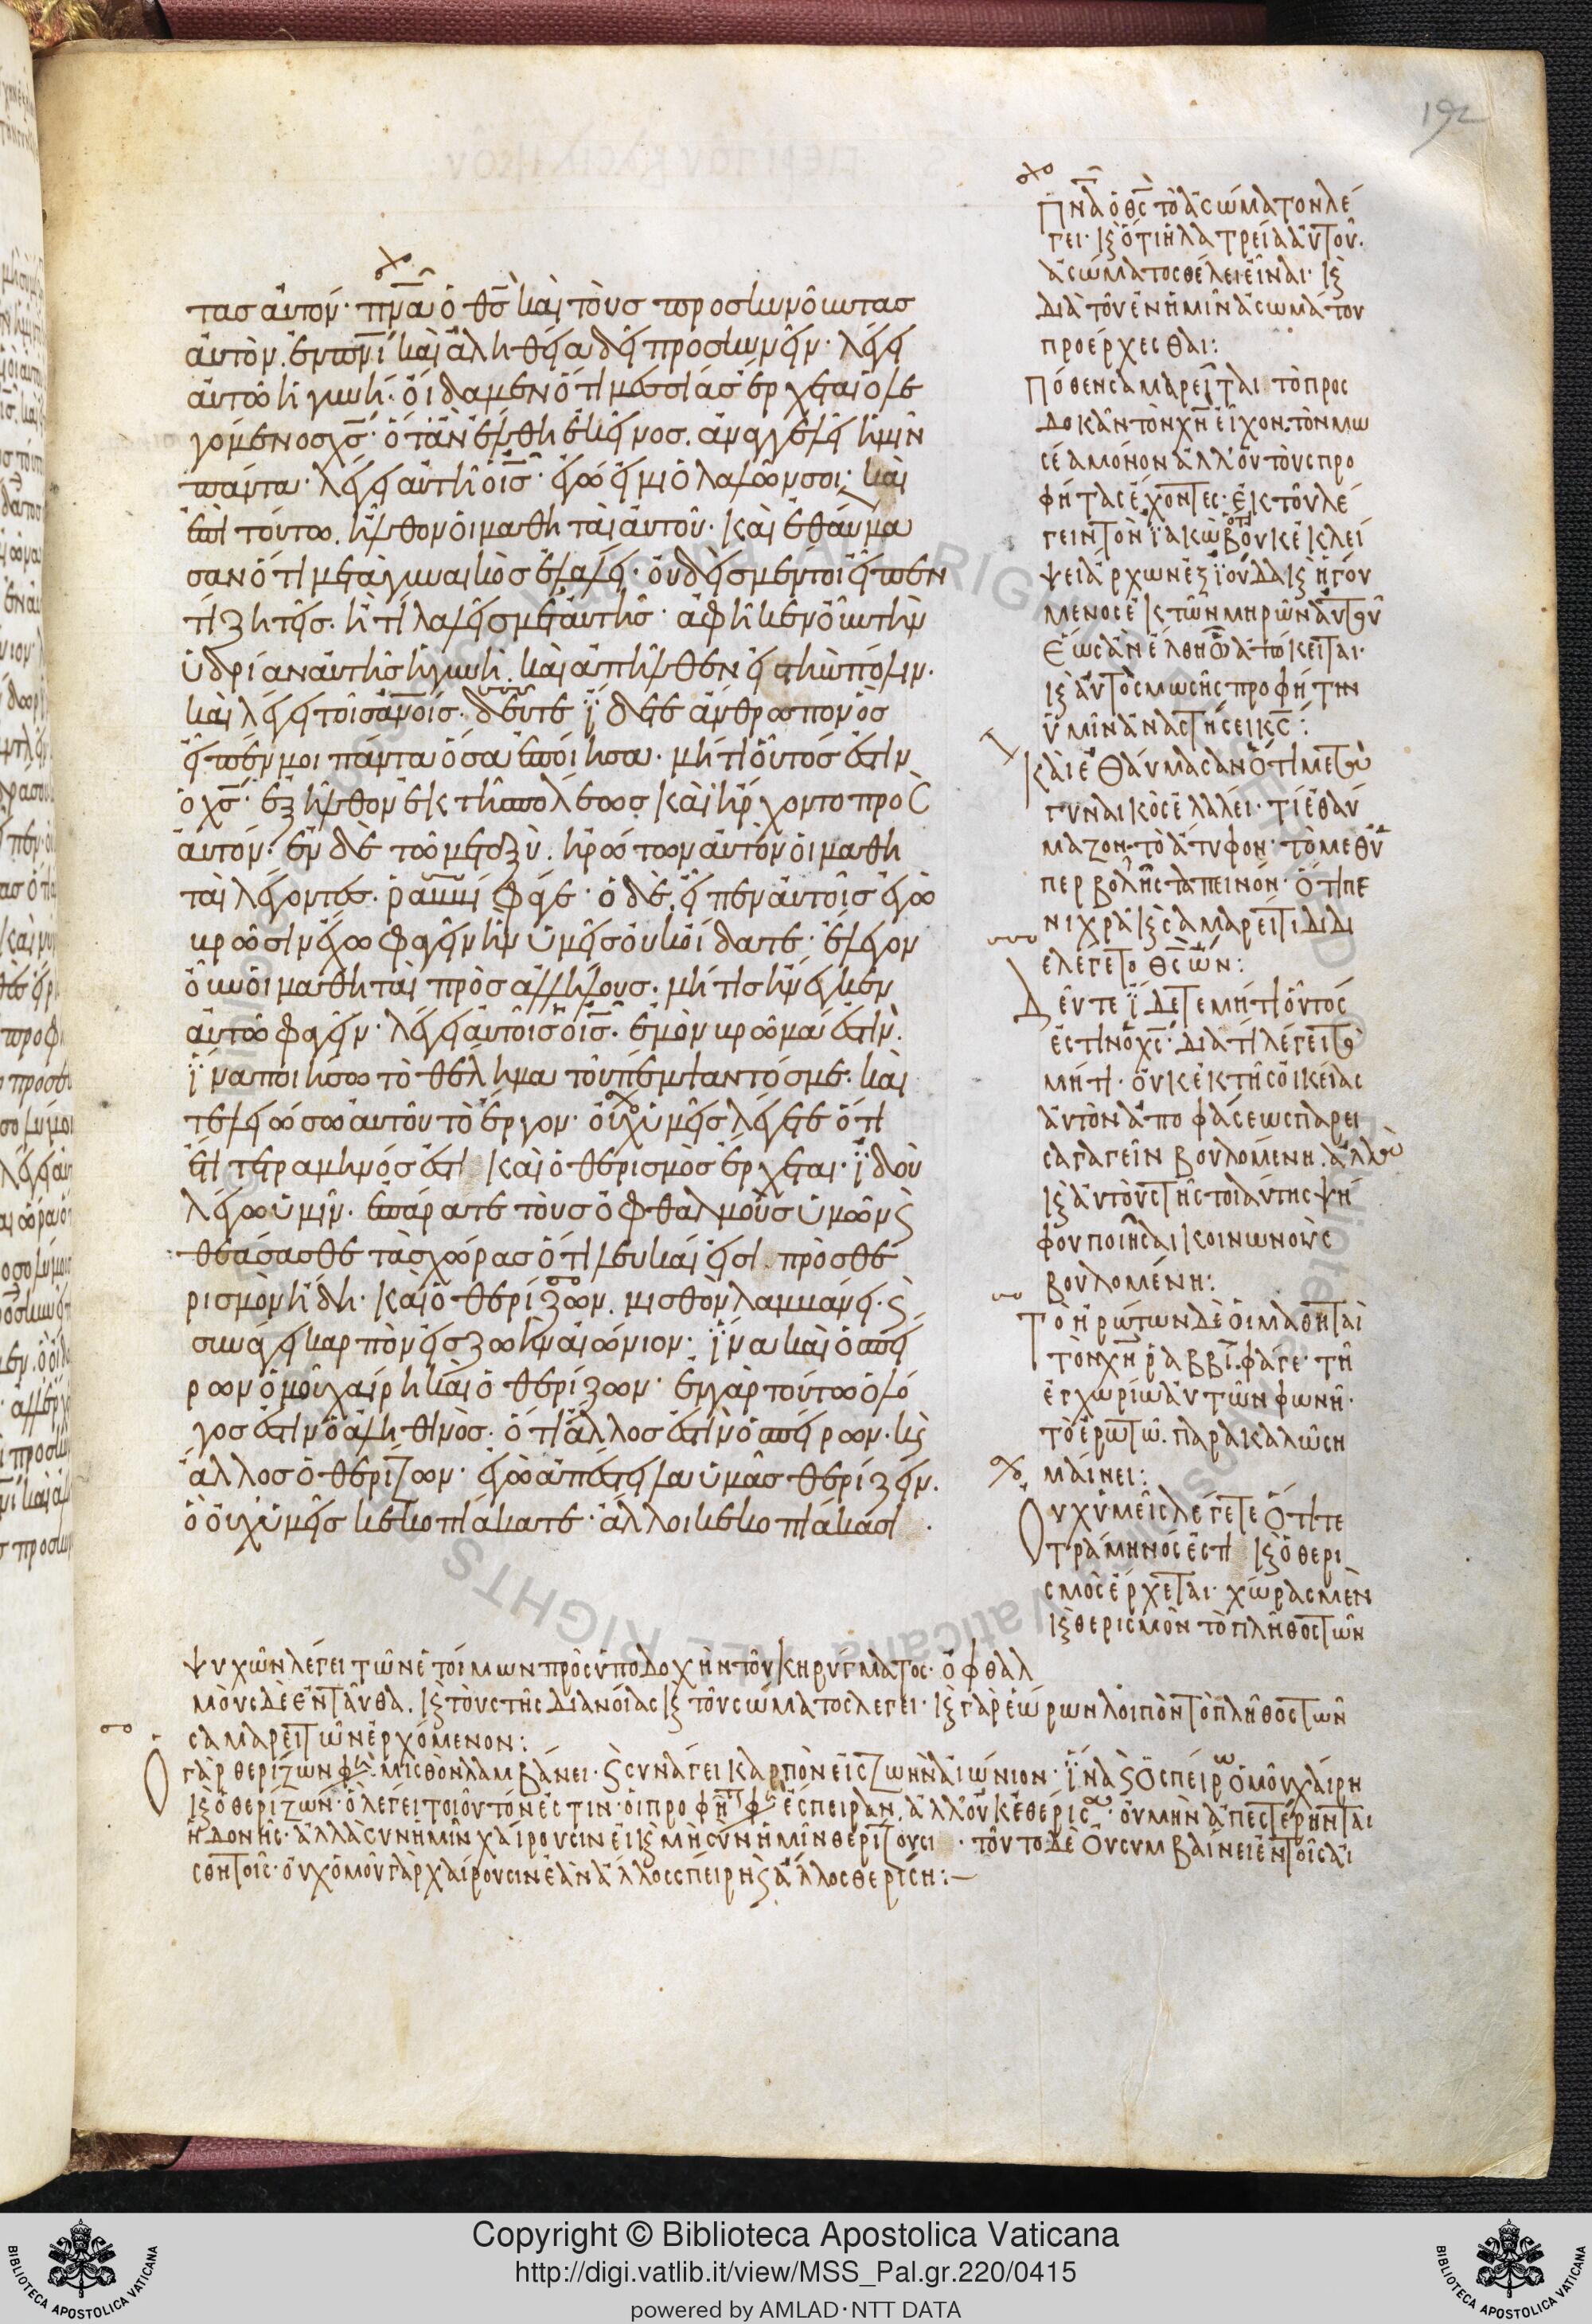 192
τας αὐτόν· π̅ν̅α̅ ὁ θ̅ς̅ καὶ τοὺς προσκυνοῦντας
αὐτὸν. ἐν π̅ν̅ι̅ καὶ ἀληθεία δεῖ προσκυνεῖν· λέγει
αὐτῶ ἡ γυνή· οἶδαμεν ὅτι μεσσίας ἔρχεται ὁ λε
γόμενος χ̅ς̅· ὅταν ἔλθη ἐκεῖνος. ἀναγγελεῖ ἡμῖν
πάντα· λέγει αὐτῆ ὁ ι̅ς̅· ἐγώ εἰμι ὁ λαλῶν σοι· καὶ
ἐπὶ τούτω. ἦλθον οἱ μαθηταὶ αὐτοῦ· καὶ ἐθαύμα
σαν ὅτι μετὰ γυναικὸς ἐλάλει· οὐδεὶς μέντοι εἶπεν
τί ζητεῖς. ἢ τί λαλεῖς μετ αὐτῆς· ἀφῆκεν οὖν τὴν
ὑδρίαν αὐτῆς ἡ γυνή. καὶ ἀπῆλθεν εἰς τὴν πόλιν·
καὶ λέγει τοῖς α̅ν̅ο̅ι̅ς̅· δεῦτε ἴδετε ἄνθρωπον ὃς
εἶπέν μοι πάντα ὅσα ἐποίησα· μήτι οὗτός ἐστιν
ὁ χ̅ς̅· ἐξῆλθον ἐκ τῆς πόλεως καὶ ἤρχοντο προς
αὐτόν· ἐν δὲ τῶ μεταξὺ. ἠρώτων αὐτὸν οἱ μαθη
ταὶ λέγοντες. ῥαββί φάγε· ὁ δὲ. εἶπεν αὐτοῖς ἐγὼ
βρῶσιν ἔχω φαγεῖν ἣν ὑμεῖς οὐκ οἴδατε· ἔλεγον
οὖν οἱ μαθηταὶ πρὸς ἀλλήλους. μήτις ἤνεγκεν
αὐτῶ φαγεῖν· λέγει αὐτοῖς ὁ ι̅ς̅· ἐμὸν βρῶμά ἐστιν.
ἵνα ποιήσω τὸ θέλημα τοῦ πέμψαντός με. καὶ
τελειώσω αὐτοῦ τὸ ἔργον· οὐχ ὑμεῖς λέγετε ὅτι
ἔτι τετράμηνός ἐστι καὶ ὁ θερισμὸς ἔρχεται· ἰδοὺ
λέγω ὑμῖν. ἐπάρατε τοὺς ὀφθαλμοὺς ὑμῶν ϗ
θεάσασθε τὰς χώρας ὅτι λευκαί εἰσι πρὸς θε
ρισμὸν ἤδη· καὶ ὁ θερίζων. μισθὸν λαμβάνει· ϗ
συνάγει καρπὸν εἰς ζωὴν αἰώνιον· ἵνα καὶ ὁ σπεί
ρων ὁμοῦ χαίρη καὶ ὁ θερίζων· ἐν γὰρ τούτω ὁ λό
γος ἐστὶν ὁ ἀληθινὸς· ὅτι ἄλλος ἐστὶν ὁ σπείρων. κϗ
ἄλλος ὁ θερίζων· ἐγὼ ἀπέστειλα ὑμᾶς θερίζειν.
ὃ οὐχ ὑμεῖς κεκοπιάκατε· ἄλλοι κεκοπιάκασι ·
π̅ν̅α̅ ὁ θ̅ς̅ τὸ ἀσώματον λέ
γει· κϗ ὅτι ἡ λατρεία αὐτοῦ.
ἀσώματος θέλει εἶναι· κϗ
διὰ τοῦ ἐν ἡμῖν ἀσωμάτου
προέρχεσθαι:
Πόθεν σαμαρεῖται τὸ προσ
δοκᾶν τὸν χ̅ν̅ εἶχον. τὸν μω
σέα μόνον ἀλλ' οὐ τοὺς προ
φήτας ἔχοντες· ἐκ τοῦ λέ
γειν τὸν ϊακὼβ ὅτι οὐκ ἐκλεί
ψει ἄρχων ἐξ ϊούδα κϗ ἡγού
μενος ἐκ τῶν μηρῶν αὐτοῦ
ἕως ἂν ἔλθη ὧ ἀπόκειται·
κϗ αὐτὸς μωσῆς προφήτην
ὑμῖν ἀναστήσει κ̅ς̅:
Καὶ ἐθαύμασαν ὅτι μετὰ
γυναικὸς ἐλάλει· τί ἐθαύ
μαζον· τὸ ἄτυφον· τὸ μεθ' ὑ
περβολῆς ταπεινόν· ὅτι πε
νιχρᾶ κϗ σαμαρείτιδι δι
ελέγετο θ̅ς̅ ὤν:
Δεῦτε ἴδετε μήτι οὗτός
ἐστιν ὁ χ̅ς̅· διατί λέγει τὸ
μήτι· οὐκ ἐκ τῆς οἰκείας
αὐτὸν ἀποφάσεως παρει
σαγαγεῖν βουλομένη. ἀλλὰ
κϗ αὐτοὺς τῆς τοιαύτης ψή
φου ποιῆσαι κοινωνοὺς
βουλομένη:
Τὸ ἠρώτων δὲ οἱ μαθηταὶ
τὸν χ̅ν̅ ῥαββί. φάγε· τῆ
ἐγχωρίω αὐτῶν φωνῆ·
τὸ ἐρωτῶ. παρακαλῶ ση
μαίνει:
Οὐχ ὑμεῖς λέγετε ὅτι τε
τράμηνός ἐστι κϗ ὁ θερι
σμὸς ἔρχεται· χώρας μὲν
κϗ θερισμὸν τὸ πλῆθος τῶν
ψυχῶν λέγει τῶν ἑτοίμων πρὸς ὑποδοχὴν τοῦ κηρύγματος· ὀφθαλ
μοὺς δὲ ἐνταῦθα. κϗ τοὺς τῆς διανοίας κϗ τοῦ σώματος λέγει· κϗ γὰρ ἑώρων λοιπὸν τὸ πλῆθος τῶν
σαμαρειτῶν ἐρχόμενον:
Ὁ γὰρ θερίζων φησὶ. μισθὸν λαμβάνει· ϗ συνάγει καρπὸν εἰς ζωὴν αἰώνιον· ἵνα ϗ ὁ σπείρων ὁμοῦ χαίρη
κϗ ὁ θερίζων· ὃ λέγει τοιοῦτόν ἐστιν· οἱ προφῆται φησὶν ἔσπειραν. ἀλλ' οὐκ ἐθέρισαν· οὐ μὴν ἀπεστέρηνται
ἡδονῆς· ἀλλὰ σὺν ἡμῖν χαίρουσιν εἰ κϗ μὴ σὺν ἡμῖν θερίζουσι · τοῦτο δὲ οὐ συμβαίνει ἐν τοῖς αἰ
σθητοῖς· οὐχ ὁμοῦ γὰρ χαίρουσιν ἐὰν ἄλλος σπείρη ϗ ἄλλος θερίση:—
Copyright © Biblioteca Apostolica Vaticana
http://digi.vatlib.it/view/MSS_Pal.gr.220/0415
powered by AMLAD·NTT DATA